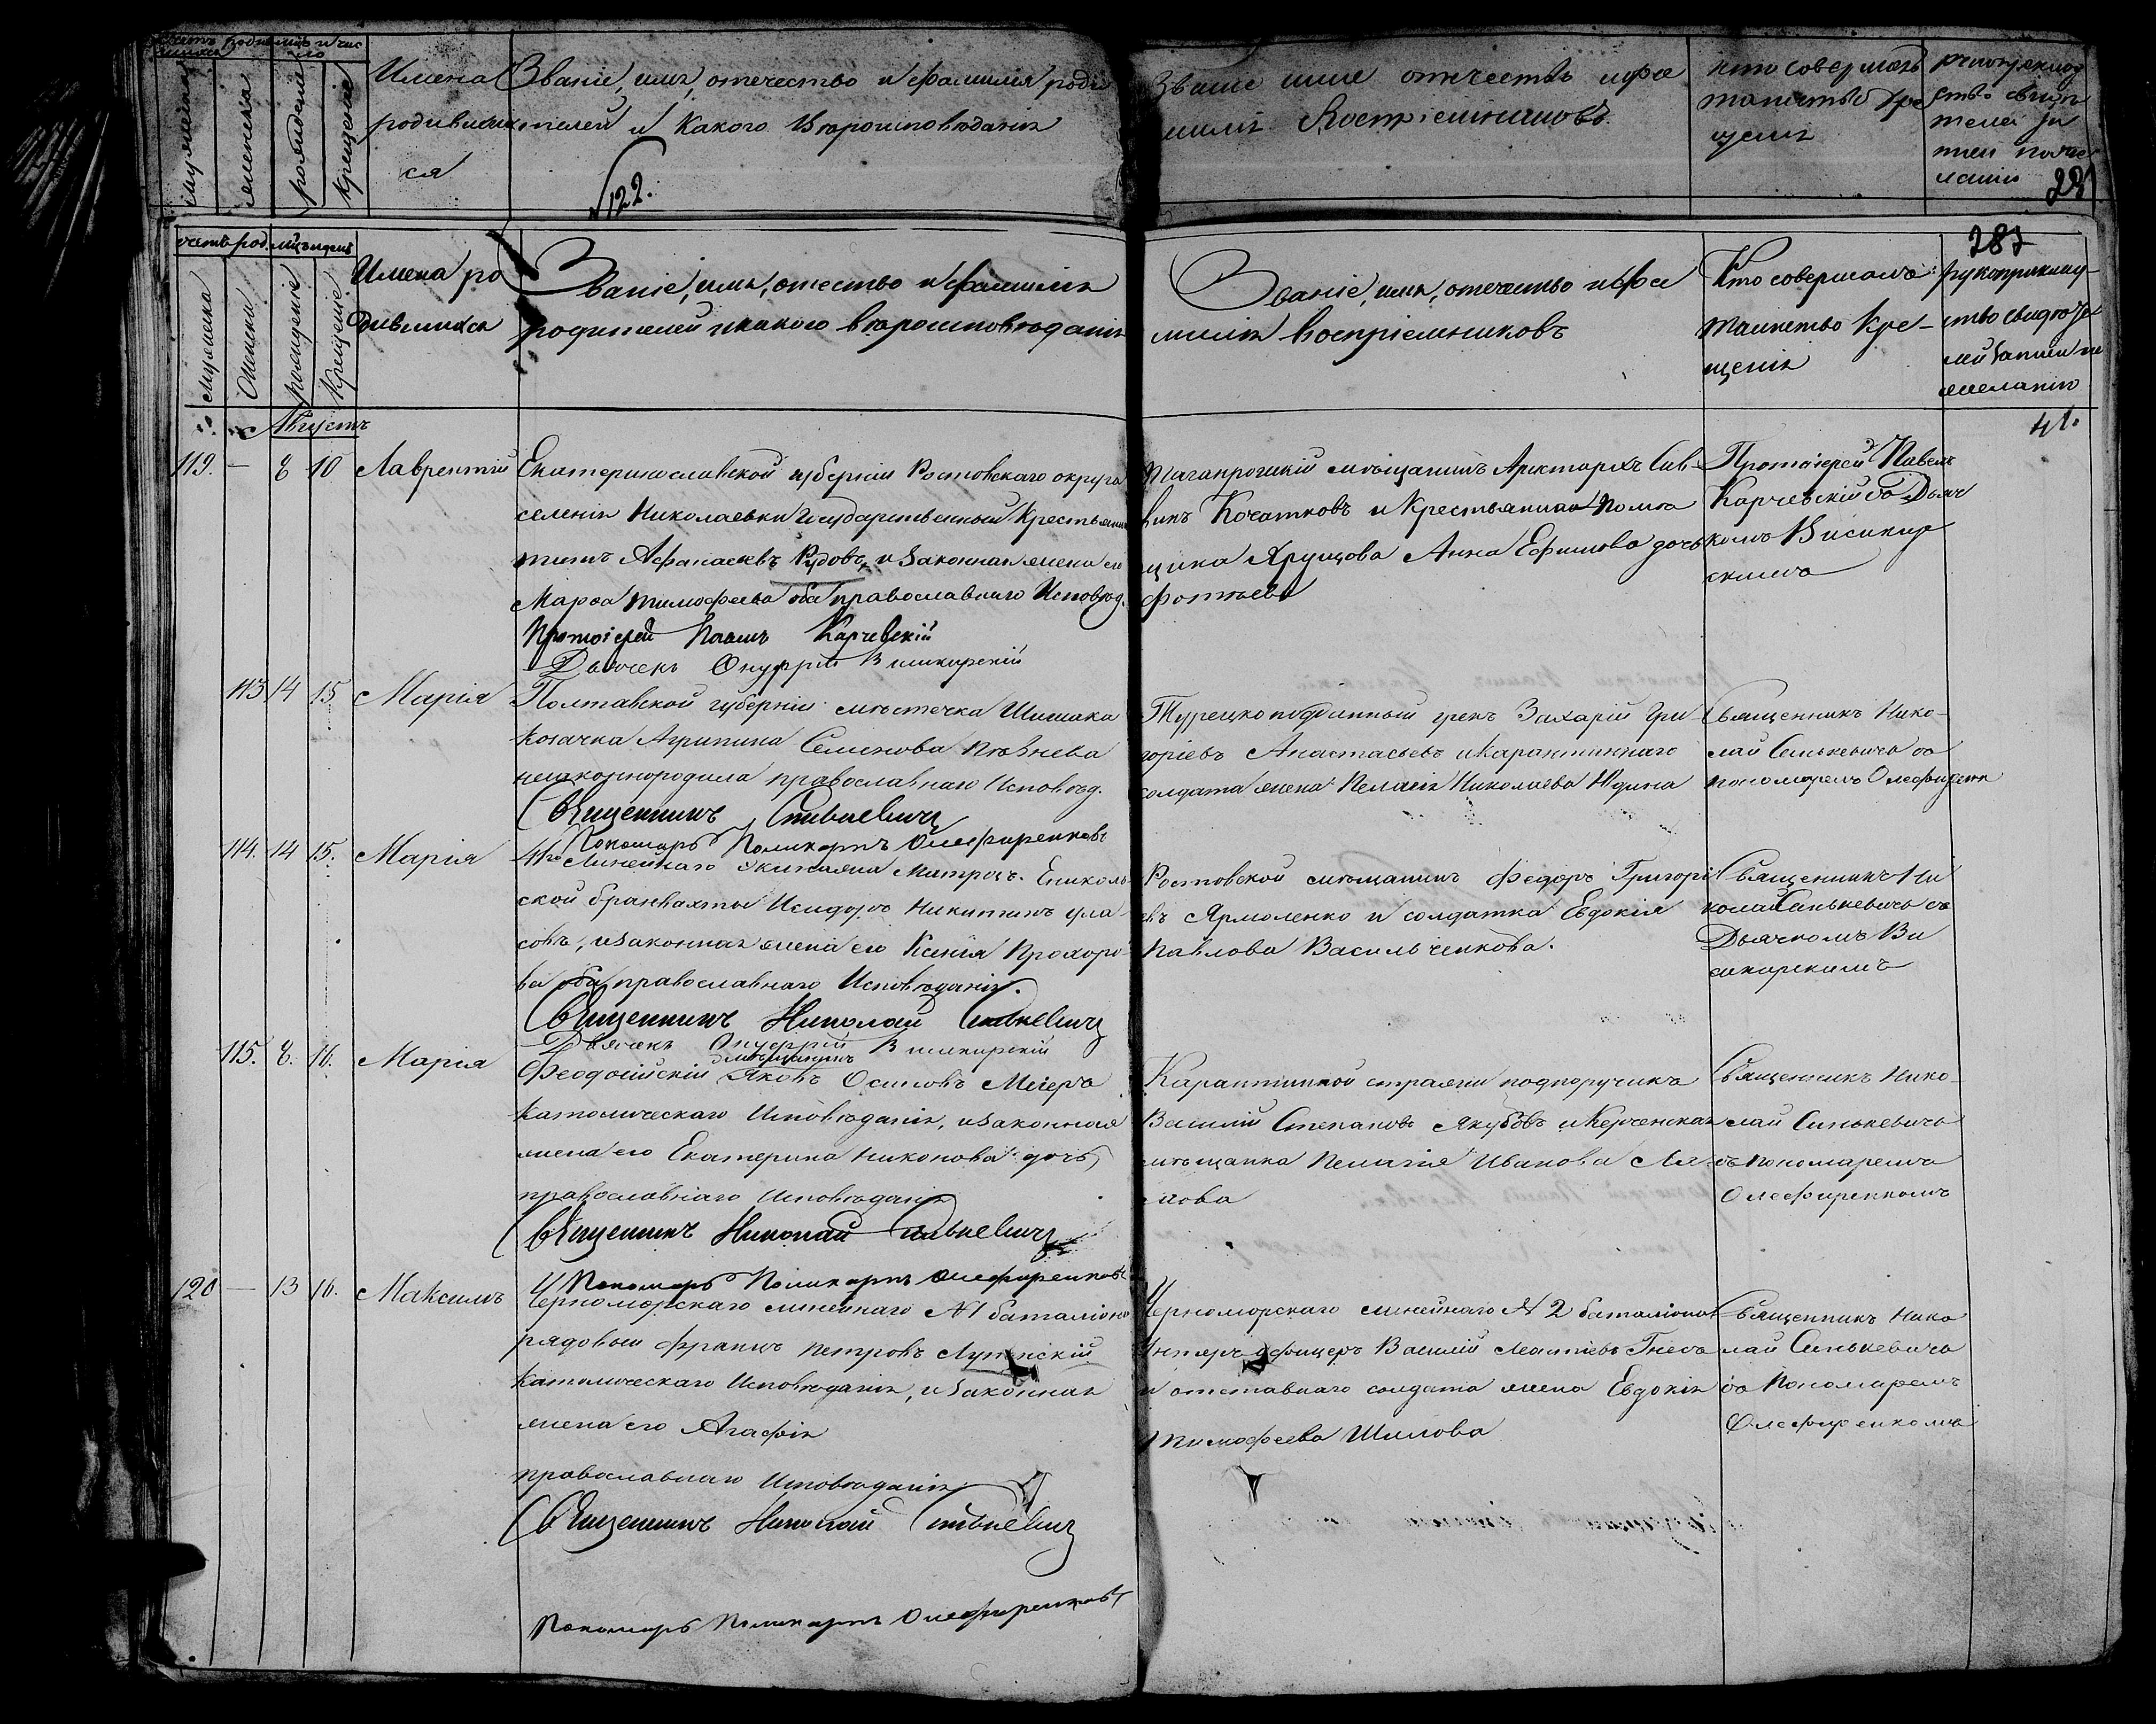 Имена
родивших
ся
Званіе, имя, отечество и фамилія роди
телей и какого Вероисповѣданія
№ 122.
Званіе имя отечество и фа
милія Воспріемниковъ
кто совершалъ
таинство кре
щенія
рукоприклад
ство свидѣ
телей за
писи по же
ланію
281
287
счетъ род. мѣц. и день
мужеска
женска
рожденіе
крещеніе
Имена ро
дившихся
Званіе, имя, отчество и фамилія
родителей и какого вѣроисповѣданія
Званіе, имя, отечество и фа
милія воспріемниковъ
Кто совершалъ
таинство Кре-
щенія
рукоприклад-
ство свидѣте
лей записи по
желанію
41.
Августъ
119. — 8 10 Лаврентій
Екатеринославской губерніи Ростовскаго округа
селенія Николаевки Государственный Крестьянинъ
Аѳанасіевъ Рудовъ, и законная жена его
Марѳа Тимоѳеева оба православнаго Исповѣд.
Протоіерей Павелъ Карчевскій
Дьячекъ Онуфрій Висикирскій
Таганрогскій мѣщанинъ Аристархъ Сав-
винъ Кочатковъ и Крестьянина помѣ
щика Хрущова Анна Ефимова дочь
Фотіева
Протоіерей Павелъ
Карчевскій съ Дьяч
комъ Висикир
скимъ
113 14 15 Марія
Полтавской губерніи мѣстечка Шишака
козачка Агрипина Семенова Пѣвнева
незаконнородила православнаго Исповѣд.
Священникъ Синькевичъ
Пономарь Поликарпъ Олефиренковъ
Турецкоподданный грекъ Захарій Гри
горіевъ Анастасьевъ и Карантиннаго
солдата жена Пелагія Николаева Юдина
Священникъ Нико-
лай Синькевичъ съ
пономаремъ Олефиренк
114. 14 15. Марія
41го Линейнаго Экипажа Матрозъ Ениколь-
ской брантвахты Исидоръ Никитинъ Ула-
совъ, и законная жена его Ксенія Прохоро-
ва оба православнаго Исповѣданія.
Священникъ Николай Синькевичъ
Дьячекъ Онуфрій Висикирскій
Ростовской мѣщанинъ Федоръ Григорі
евъ Ярмоленко и солдатка Евдокія
Павлова Васильченкова.
Священникъ Ни
колай Синькевичъ съ
Дьячкомъ Ви
сикирскимъ
115. 8. 16. Марія
Феодосійскій мѣщанинъ Яковъ Осиповъ Меіеръ
католическаго Исповѣданія, и законная
жена его Екатерина Никонова дочь
православнаго Исповѣданія
Священникъ Николай Синькевичъ
Пономарь Поликарпъ Олефиренковъ
Карантинной стражи подпоручикъ
Василій Степановъ Якубовъ и Керченская
мѣщанка Пелагія Иванова Ля-
лова
Священникъ Нико-
лай Синькевичъ
съ пономаремъ
Олефиренкомъ
120 — 13 16. Максимъ
Черноморскаго линейнаго №1 баталіона
рядовый Францъ Петровъ
католическаго Исповѣданія, и законная
жена его Агафія
православнаго Исповѣданія
Священникъ Николай Синькевичъ
Пономарь Поликарпъ Олефиренковъ
Черноморскаго линейнаго №2 баталіона
Унтеръ-офицеръ Василій
и отставнаго солдата жена Евдокія
Тимофеева Шилова
Священникъ Нико
лай Синькевичъ
съ Пономаремъ
Олефиренкомъ